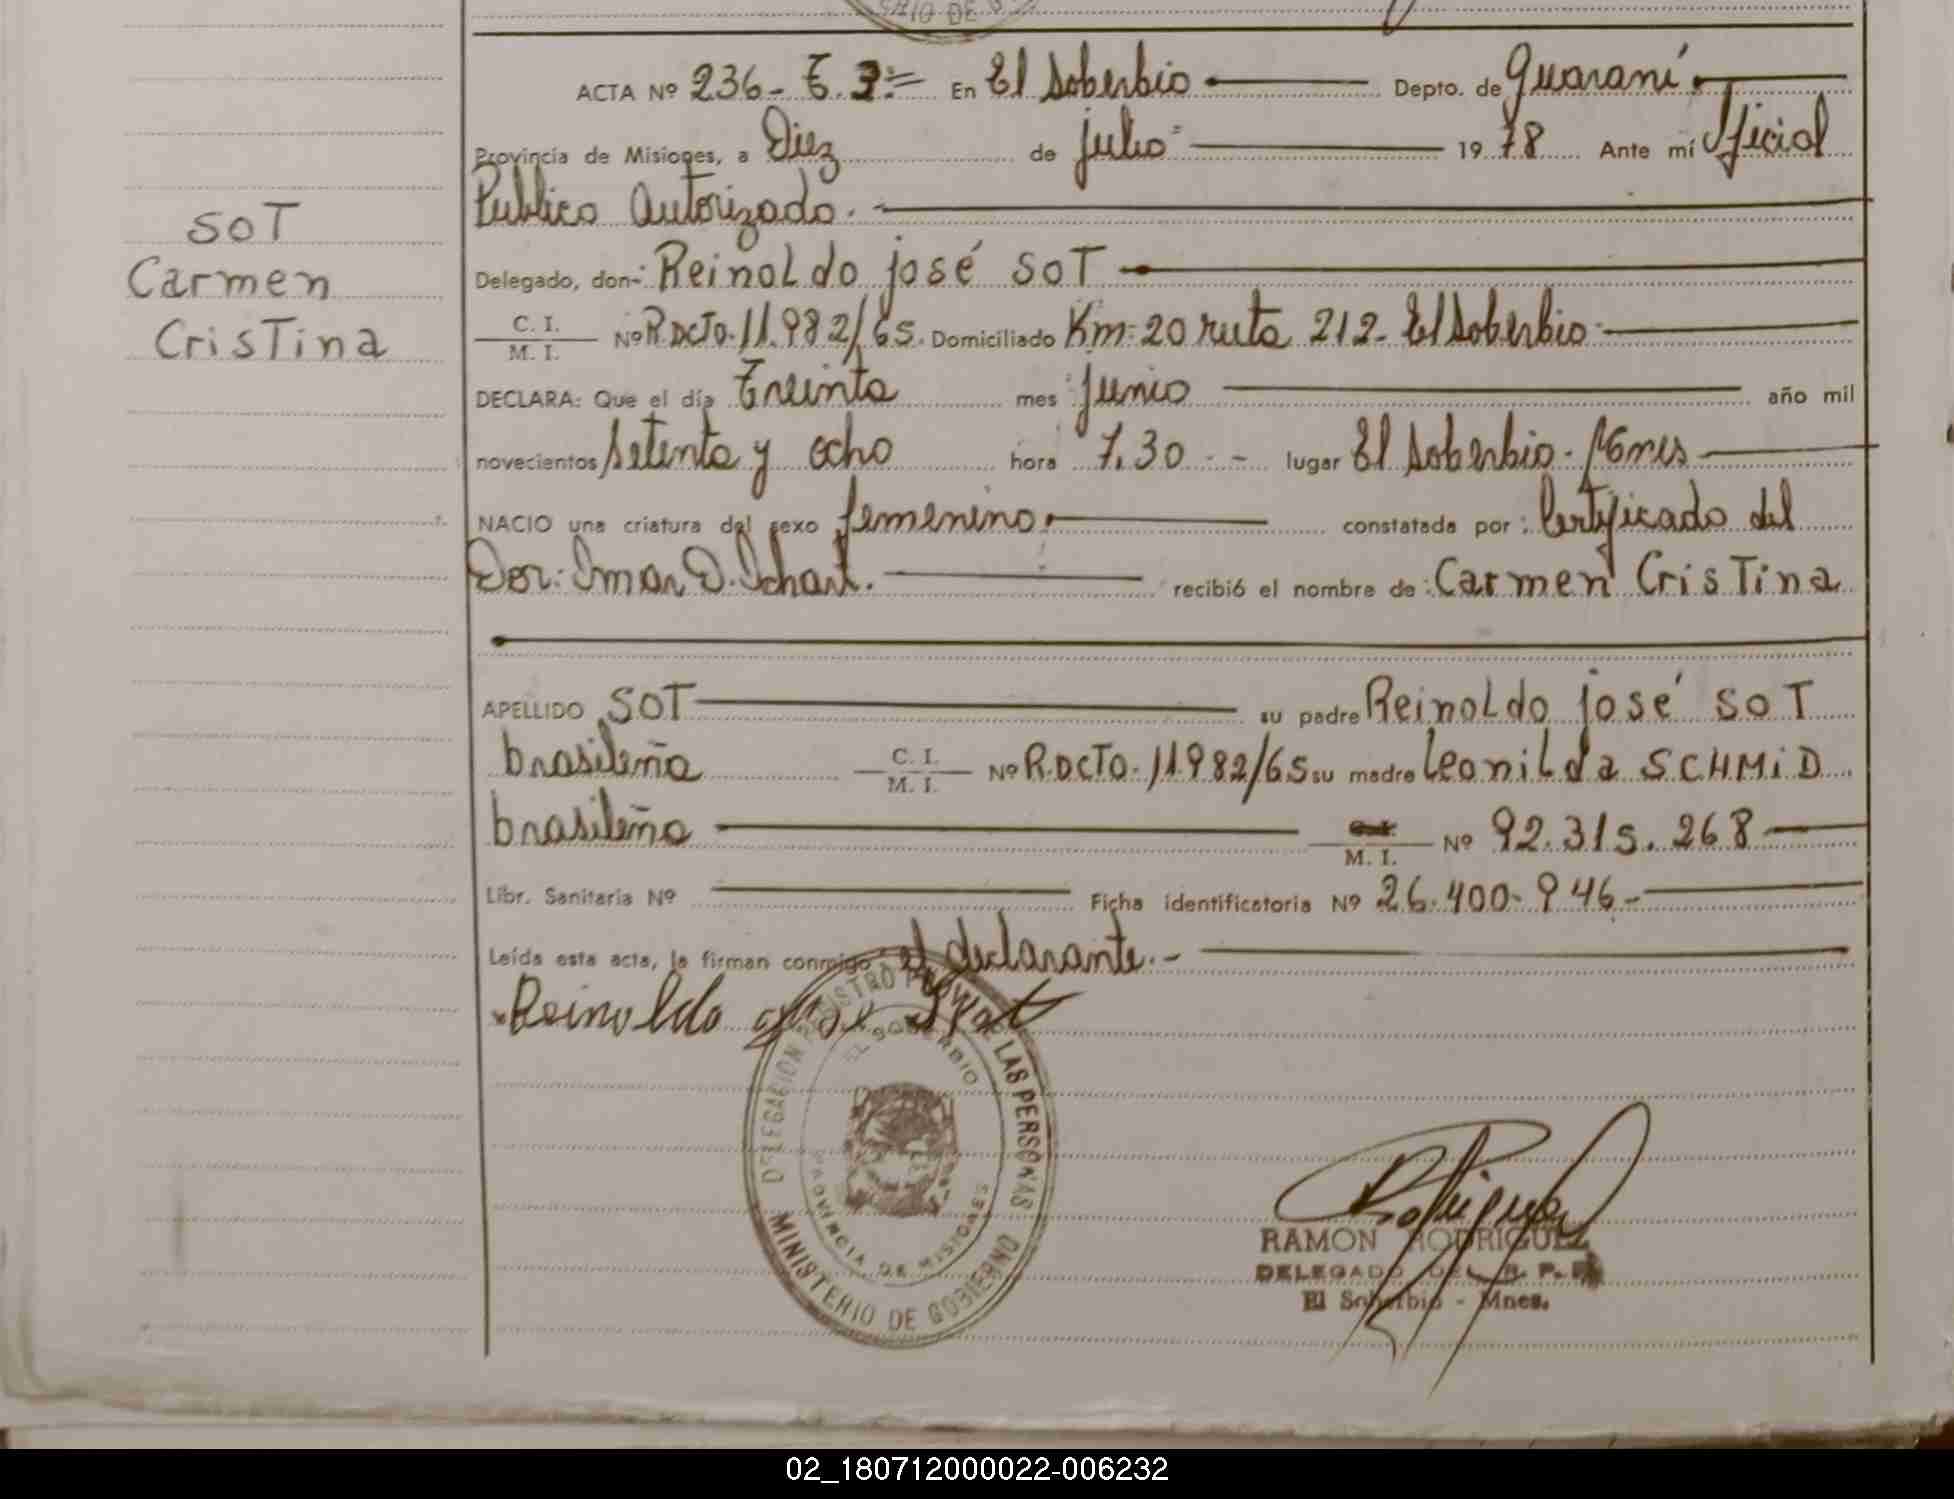 SARIO DE G
ACTA Nº 236- T. 3= En El Soberbio Depto. de Guaraní
Provincia de Misiones, a Diez de julio 1978 Ante mí Oficial
Publico Autorizado.
SOT
Delegado, don: Reinoldo josé SOT
Carmen
C. I.
M. I. Nº R.DCTO. 11.982/65. Domiciliado Km: 20 ruta 212- El Soberbio
CrisTina
DECLARA: Que el día Treinta mes junio año mil
novecientos setenta y ocho hora 7.30 -- lugar El Soberbio- Mnes
NACIO una criatura del sexo femenino. constatada por: Certificado del
Dor: Omar D. Schart. recibió el nombre de: Carmen CrisTina
APELLIDO SOT su padre Reinoldo josé SOT
brasileña C. I.
M. I. Nº R.DCTO. 11982/65 su madre Leonilda SCHMiD
brasileña M. I. Nº 92.315.268
Libr. Sanitaria Nº Ficha identificatoria Nº 26.400.946-
Leída esta acta, la firman conmigo el declarante.-
Reinoldo José Sot
DELEGACION REGISTRO PROV. DE LAS PERSONAS
EL SOBERBIO
PROVINCIA DE MISIONES
MINISTERIO DE GOBIERNO
Rodriguez
RAMON RODRIGUEZ
DELEGADO DEL R. P. P.
El Soberbio - Mnes.
02_180712000022-006232